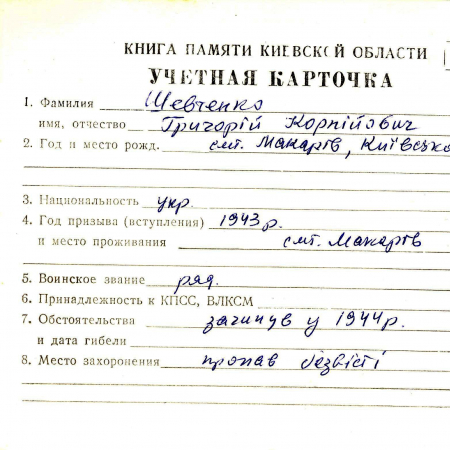 КНИГА ПАМЯТИ КИЕВСКОЙ ОБЛАСТИ
УЧЕТНАЯ КАРТОЧКА
1. Фамилия Шевченко
имя, отчество Григорій Корпійович
2. Год и место рожд. смт. Макарів, Київська
3. Национальность укр.
4. Год призыва (вступления) 1943 р.
и место проживания смт. Макарів
5. Воинское звание ряд.
6. Принадлежность к КПСС, ВЛКСМ
7. Обстоятельства загинув у 1944 р.
и дата гибели
8. Место захоронения пропав безвісті